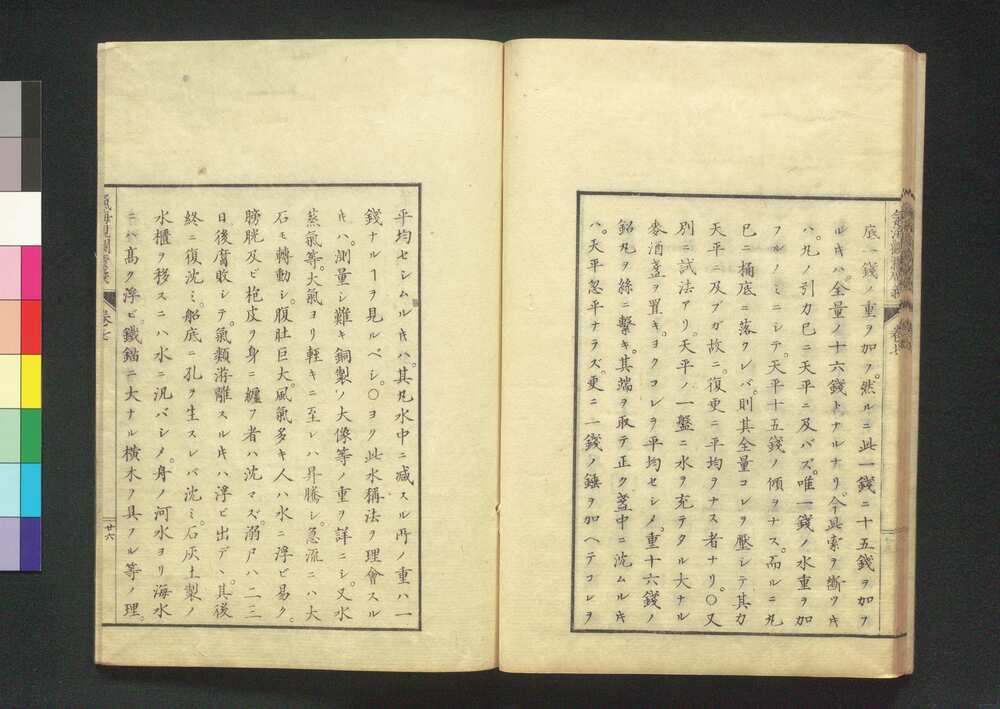 底一錢ノ重ヲ加フ。然ルニ此一錢ニ十五錢ヲ加フ
ルキハ。全量ノ十六錢トナルナリ。今其索ヲ斷ツキ
ハ。丸ノ引力巳ニ天平ニ及バズ。唯一錢ノ水重ヲ加
フルノミニシテ。天平十五錢ノ傾ヲナス。而ルニ丸
巳ニ桶底ニ落クレバ。則其全量コレヲ壓シテ其力
天平ニ及ブガ故ニ。復更ニ平均ヲナス者ナリ。○又
別ニ試法アリ。天平ノ一盤ニ水ヲ充テタル大ナル
麥酒盞ヲ置キ。ヨクコレヲ平均セシメ。重十六錢ノ
鉛丸ヲ絲ニ繫キ。其端ヲ取テ正ク盞中ニ沈ムルキ
ハ。天平忽平ナラズ。更ニ一錢ノ錘ヲ加ヘテコレヲ
平均セシムルキハ。其丸水中ニ减スル所ノ重ハ一
錢ナルヿヲ見ルベシ。○ヨク此水稱法ヲ理會スル
キハ。測量シ難キ銅製ノ大像等ノ重ヲ詳ニシ。又水
蒸氣等。大氣ヨリ輕キニ至レハ昇騰シ。急流ニハ大
石モ轉動シ。腹肚巨大。風氣多キ人ハ水ニ浮ビ易ク。
膀胱及ビ枹皮ヲ身ニ纏フ者ハ沈マズ。溺尸ハ二三
日後腐敗シテ。氣類游離スルキハ浮ビ出デヽ。其後
終ニ復沈ミ。船底ニ孔ヲ生スレバ沈ミ。石灰土製ノ
水櫃ヲ移スニハ水ニ汎バシメ。舟ノ河水ヨリ海水
ニハ高ク浮ビ。鐵錨ニ大ナル橫木ヲ具フル等ノ理。
卷七
廿六